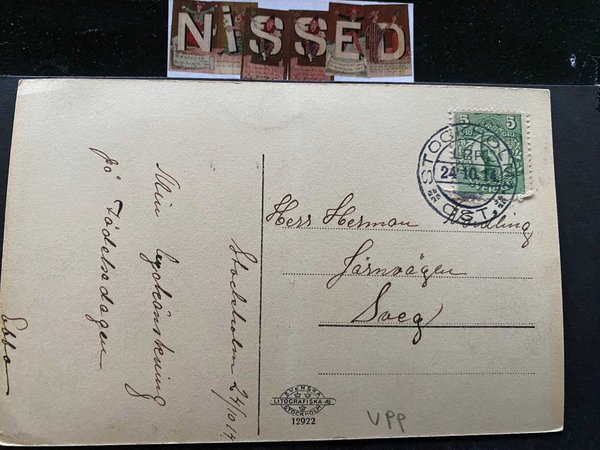 NiSSED
5 5
STOCKHOLM
24.10.14
ÖST.
Herr Herman
Järnvägen
Sveg
Stockholm 24/10 14
Min lyckönskning
på Födelsedagen
Ebba
SVENSKA
LITOGRAFISKA AB
STOCKHOLM
12922
VPP